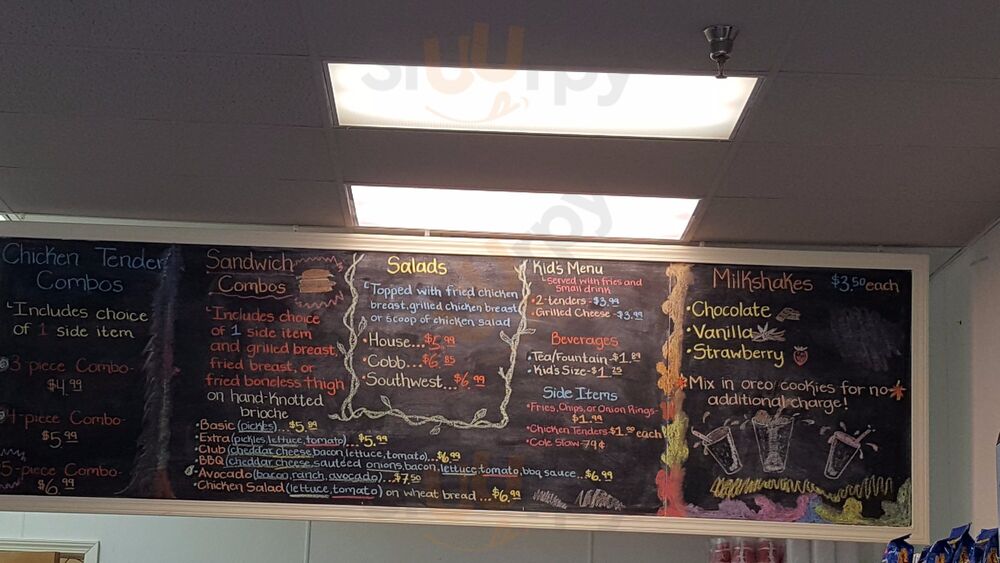 sluurpy
sluurpy
Chicken Tender
Combos
Includes choice
of 1 side item
3 piece Combo-
$4.99
4-piece Combo-
$5.99
5-piece Combo-
$6.99
Sandwich
Combos
Includes choice
of 1 side item
and grilled breast,
fried breast, or
fried boneless thigh
on hand-knotted
brioche
•Basic (pickles)...$5.84
•Extra (pickles, lettuce, tomato)...$5.99
•Club (cheddar cheese, bacon, lettuce, tomato)...$6.99
•BBQ (cheddar cheese, sauteed onions, bacon, lettuce, tomato, bbq sauce...$6.99
•Avocado (bacon, ranch, avocado)...$7.50
•Chicken Salad (lettuce, tomato) on wheat bread...$6.99
Salads
Topped with fried chicken
breast, grilled chicken breast
or scoop of chicken salad
•House...$5.99
•Cobb...$6.85
•Southwest...$6.99
Kid's Menu
Served with fries and
small drink
•2-tenders-$3.99
•Grilled Cheese-$3.99
Beverages
•Tea/Fountain-$1.89
•Kid's Size-$1.25
Side Items
•Fries, Chips, or Onion Rings-
$1.99
•Chicken Tenders-$1.50 each
•Cole Slaw-79¢
Milkshakes $3.50 each
•Chocolate
•Vanilla
•Strawberry
Mix in oreo cookies for no
additional charge!